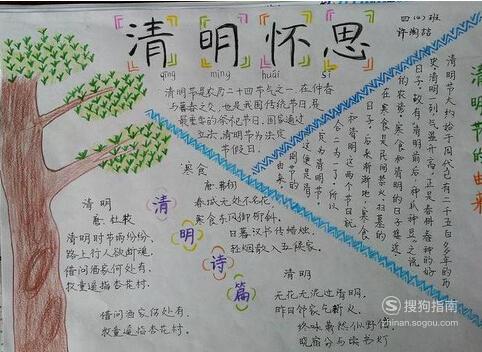 清明怀思
qīng míng huái sī
四(2)班
清明节是农历二十四节气之一,在仲春
与暮春之交,也是我国传统节日,是
最重要的祭祀节日,国家通过
立法,清明节为法定
节假日。
寒食
唐 韩翃
春城无处不飞花,
寒食东风御柳斜。
日暮汉书传蜡烛,
轻烟散入五侯家。
清明
唐·杜牧
清明时节雨纷纷,
路上行人欲断魂。
借问酒家何处有,
牧童遥指杏花村。
借问酒家何处有,
牧童遥指杏花村。
清明诗篇
清明
无花无酒过清明,
昨日邻家乞新火,
晓窗分与读书灯
清明节的由来
清明节大约始于周代已有二千五百多年的历
史清明一到气温升高,正是春耕春种的好
日子,故有清明前后,种瓜种豆之说
的农谚。寒食和清明的日子接近,
在寒食是民间禁火扫墓的
日子,后来渐渐地,寒食
和清明这两个节日就
合二为一了,所以
变为清明节,
这便是清
明节的
由来。
搜狗指南
zhinan.sogou.com